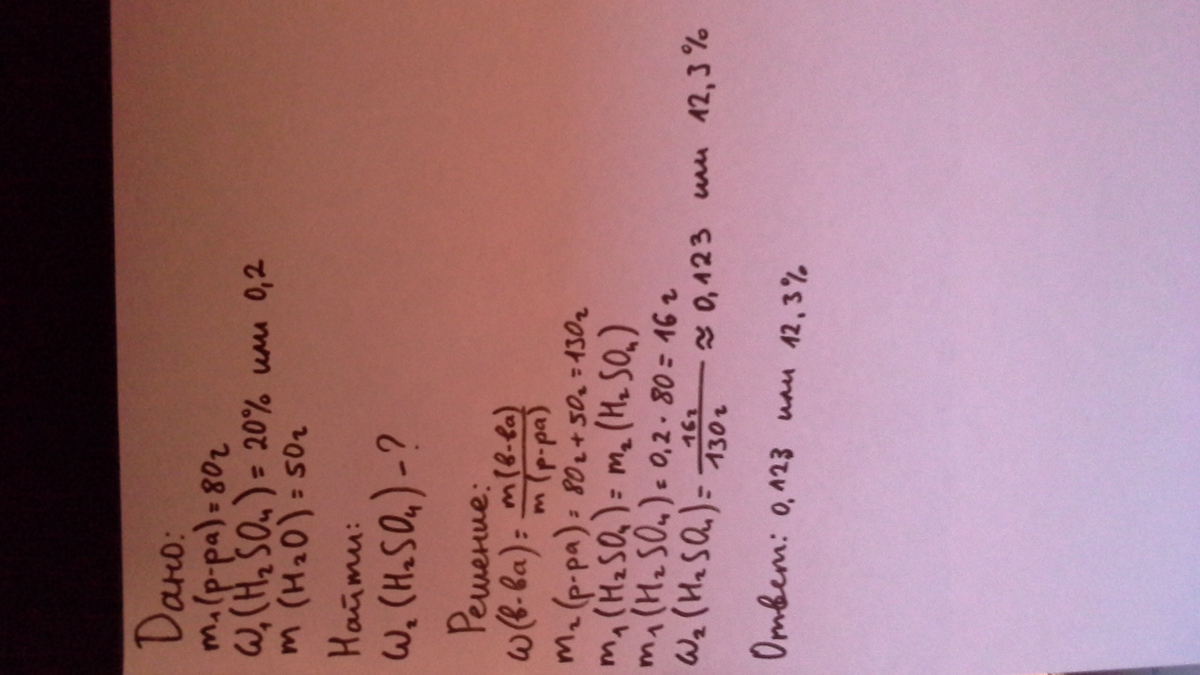 Дано:
m₁(р-ра)=80г
ω₁(H₂SO₄)=20% или 0,2
m(H₂O)=50г
Найти:
ω₂(H₂SO₄)-?
Решение:
ω(в-ва)=m(в-ва)/m(р-ра)
m₂(р-ра)=80г+50г=130г
m₁(H₂SO₄)=m₂(H₂SO₄)
m₁(H₂SO₄)=0,2·80=16г
ω₂(H₂SO₄)=16г/130г≈0,123 или 12,3%
Ответ: 0,123 или 12,3%